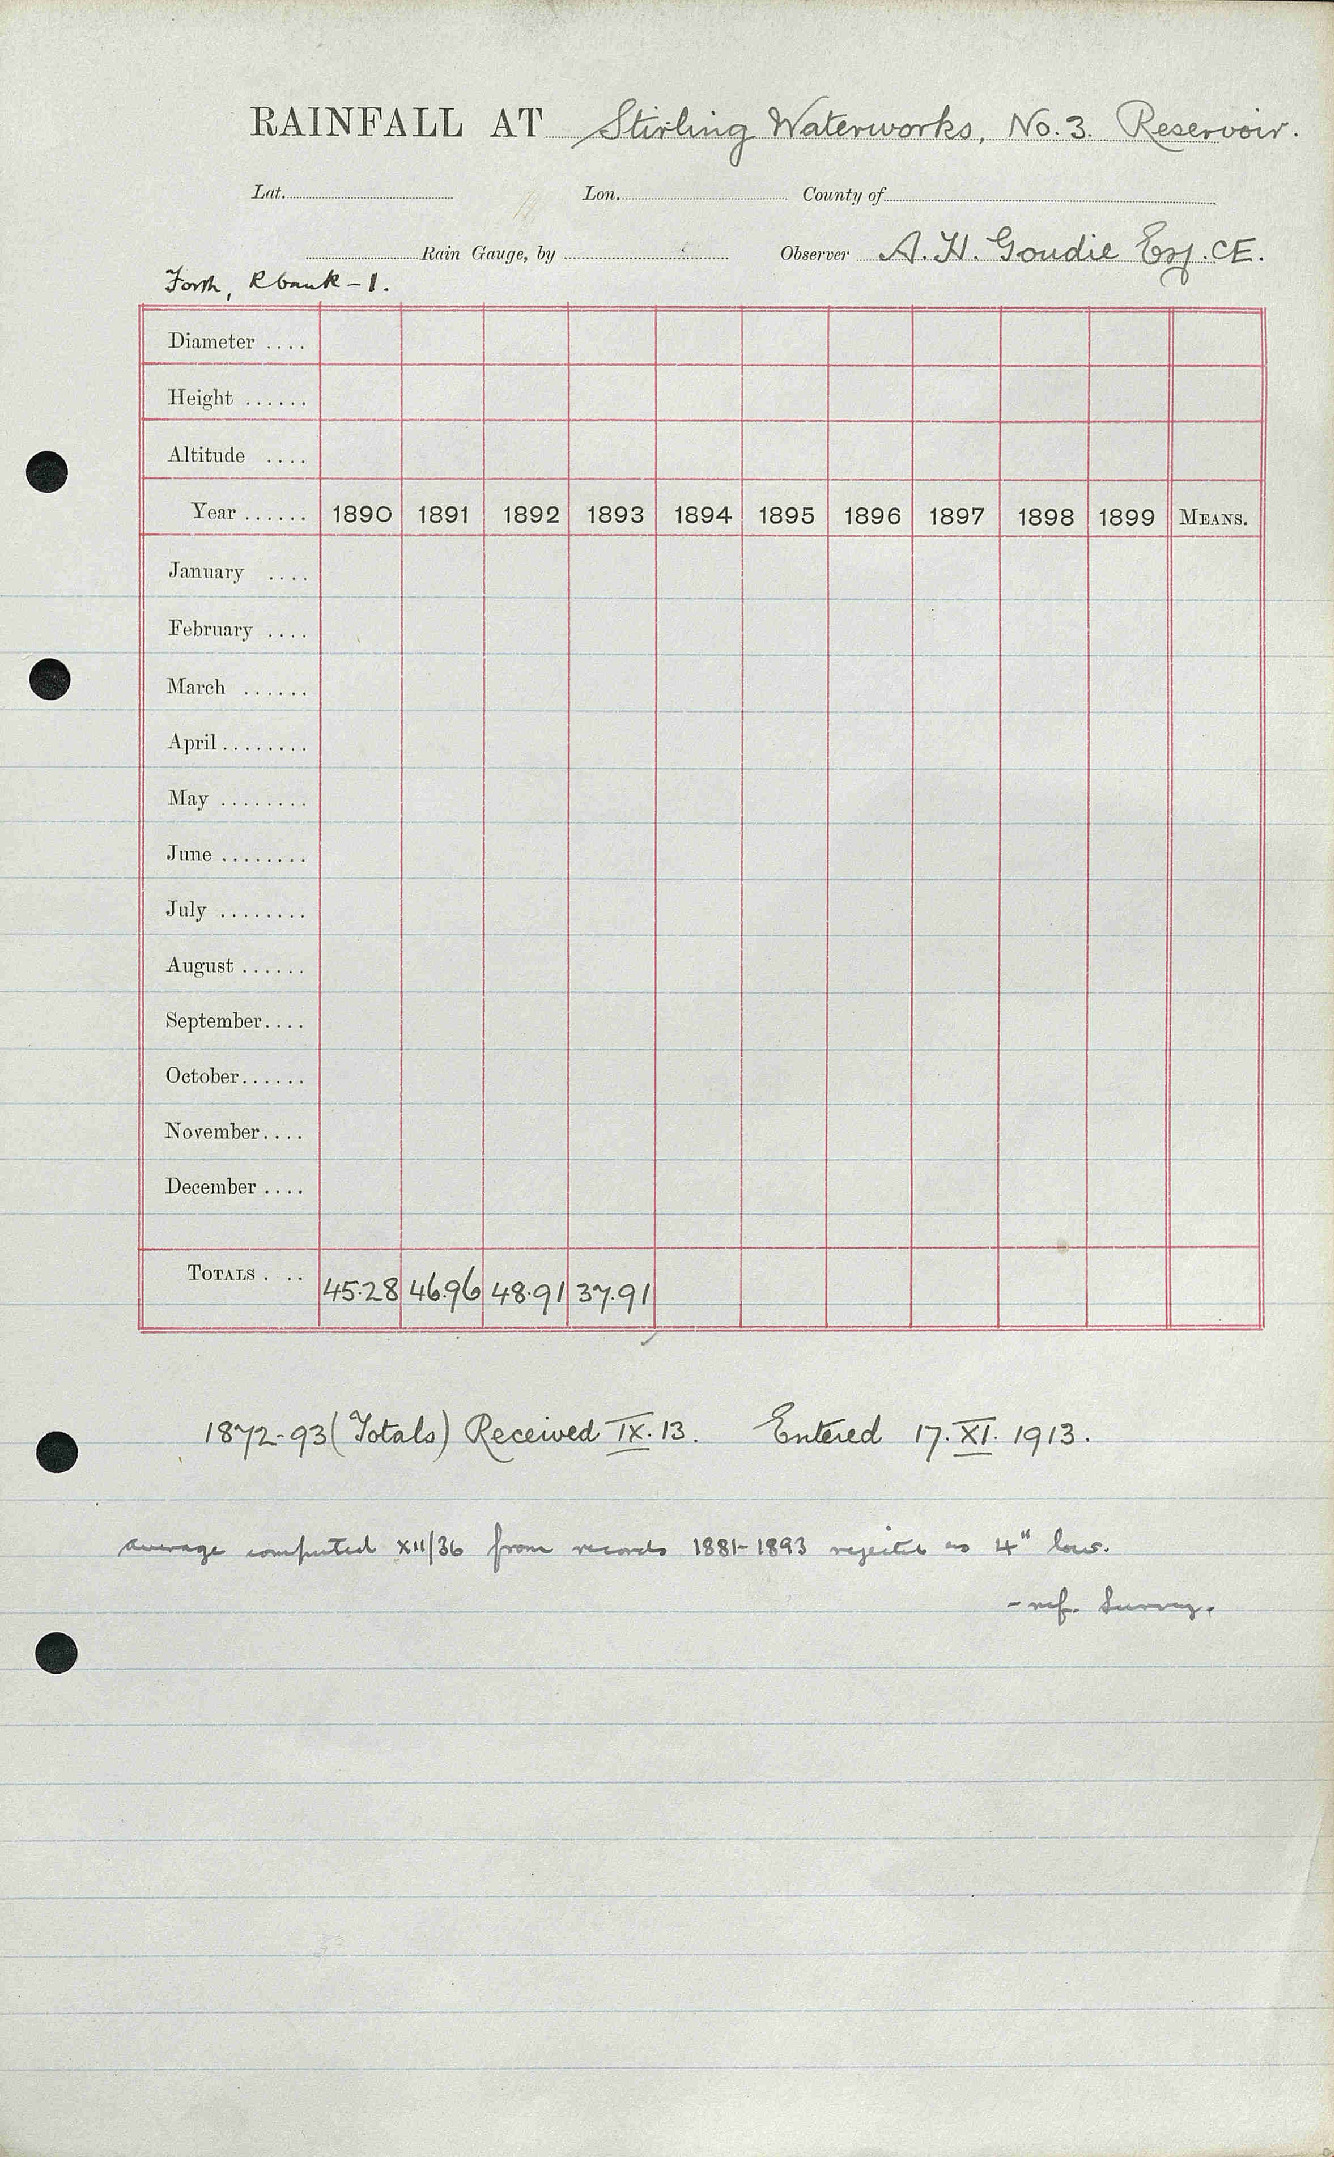 RAINFALL AT Stirling Waterworks, No. 3. Reservoir.
Lat. Lon. County of
Rain Gauge, by Observer A. H. Goudie Esq. CE.
Forth, R bank - 1.
Diameter ....
Height ......
Altitude ....
Year ...... 1890 1891 1892 1893 1894 1895 1896 1897 1898 1899 MEANS.
January ....
February ....
March ......
April ........
May ........
June ........
July ........
August ......
September....
October......
November....
December ....
TOTALS . .. 45.28 46.96 48.91 37.91
1872-93 (Totals) Received IX. 13. Entered 17. XI. 1913.
average computed XII/36 from records 1881-1893 rejected as 4" low.
- ref. Survey.